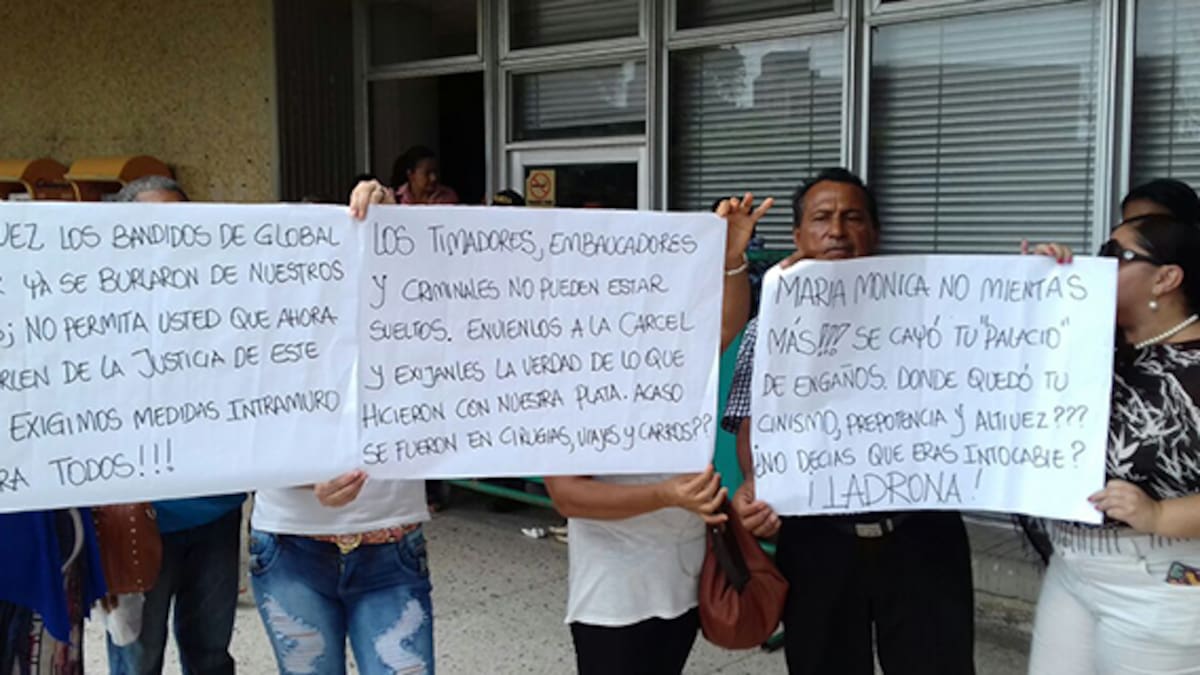 UEZ LOS BANDIDOS DE GLOBAL
YA SE BURLARON DE NUESTROS
¡ NO PERMITA USTED QUE AHORA
RLEN DE LA JUSTICIA DE ESTE
EXIGIMOS MEDIDAS INTRAMURO
RA TODOS!!!
LOS TIMADORES, EMBAUCADORES
Y CRIMINALES NO PUEDEN ESTAR
SUELTOS. ENVIENLOS A LA CARCEL
Y EXIJANLES LA VERDAD DE LO QUE
HICIERON CON NUESTRA PLATA. ACASO
SE FUERON EN CIRUGIAS, VIAJES Y CARROS??
MARIA MONICA NO MIENTAS
MÁS!!! SE CAYÓ TU "PALACIO"
DE ENGAÑOS. DONDE QUEDÓ TU
CINISMO, PREPOTENCIA Y ALTIVEZ???
¿NO DECIAS QUE ERAS INTOCABLE?
¡LADRONA!